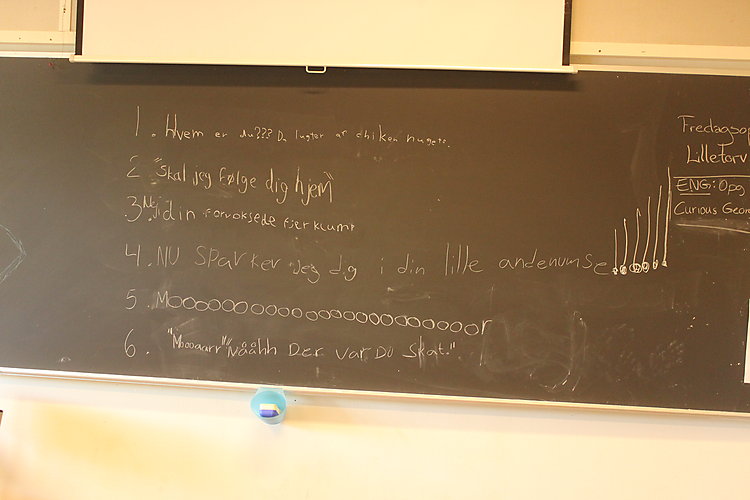 1. Hvem er du??? Du lugter af chiken nugets.
2 "Skal jeg følge dig hjem"
3. Nej din forvoksede fjerklump
4. NU sparker jeg dig i din lille andenumse!!!!!!
5. Mooooooooooooooooooooooor
6. "Moooaarr" Nååhh Der var Du skat."
Fredagsop
Lilletorv
ENG: Opg
Curious Geor